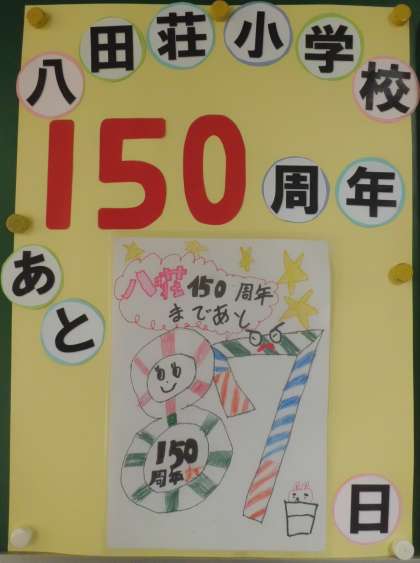 八田荘小学校
150周年
あと
八荘150周年
まであと
87
150
周年
日